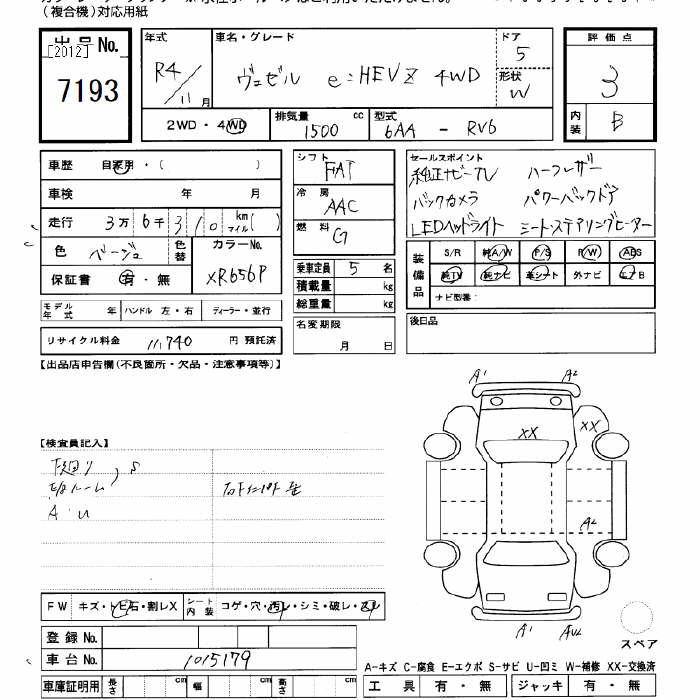 （複合機）対応用紙
出品No.
[2012]
7193
年式
R4/11月
車名・グレード
ヴェゼル e:HEV Z 4WD
ドア
5
形状
W
評価点
3
内装
B
2WD・4WD
排気量 cc
1500
型式
6AA - RV6
車歴 自家用・( )
車検 年 月
走行 3万6千310 km マイル( )
色 ベージュ 色替 カラーNo. XR656P
保証書 有・無
モデル年式 年 ハンドル 左・右 ディーラー・並行
リサイクル料金 11,740 円 預託済
シフト
FAT
冷房
AAC
燃料
G
乗車定員 5 名
積載量 kg
総重量 kg
名変期限
月 日
セールスポイント
純正ナビTV ハーフレザー
バックカメラ パワーバックドア
LEDヘッドライト シート・ステアリングヒーター
装備品
S/R 純A/W P/S P/W ABS
純TV 純ナビ 革シート 外ナビ エアB
ナビ型番:
後日品
【出品店申告欄(不良箇所・欠品・注意事項等)】
【検査員記入】
下廻り、S
A・U
A1 A2
XX XX
A2
A1
スペア
FW キズ・トビ石・割レX シート内装 コゲ・穴・汚レ・シミ・破レ・スレ
登録No.
車台No. 1015179
車庫証明用 長さ cm 幅 cm 高さ cm
A-キズ C-腐食 E-エクボ S-サビ U-凹ミ W-補修 XX-交換済
工具 有・無 ジャッキ 有・無